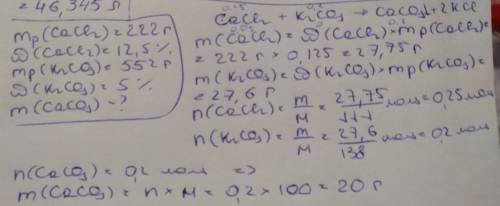 = 46,345 л
mр(CaCl₂) = 222 г
ω(CaCl₂) = 12,5 %
mр(K₂CO₃) = 552 г
ω(K₂CO₃) = 5 %
m(CaCO₃) - ?
0,25 0,2
CaCl₂ + K₂CO₃ → CaCO₃ + 2KCl
m(CaCl₂) = ω(CaCl₂) × mр(CaCl₂) =
= 222 г × 0,125 = 27,75 г
m(K₂CO₃) = ω(K₂CO₃) × mр(K₂CO₃) =
= 27,6 г
n(CaCl₂) = m/M = 27,75/111 моль = 0,25 моль
n(K₂CO₃) = m/M = 27,6/138 моль = 0,2 моль
n(CaCO₃) = 0,2 моль =>
m(CaCO₃) = n × M = 0,2 × 100 = 20 г